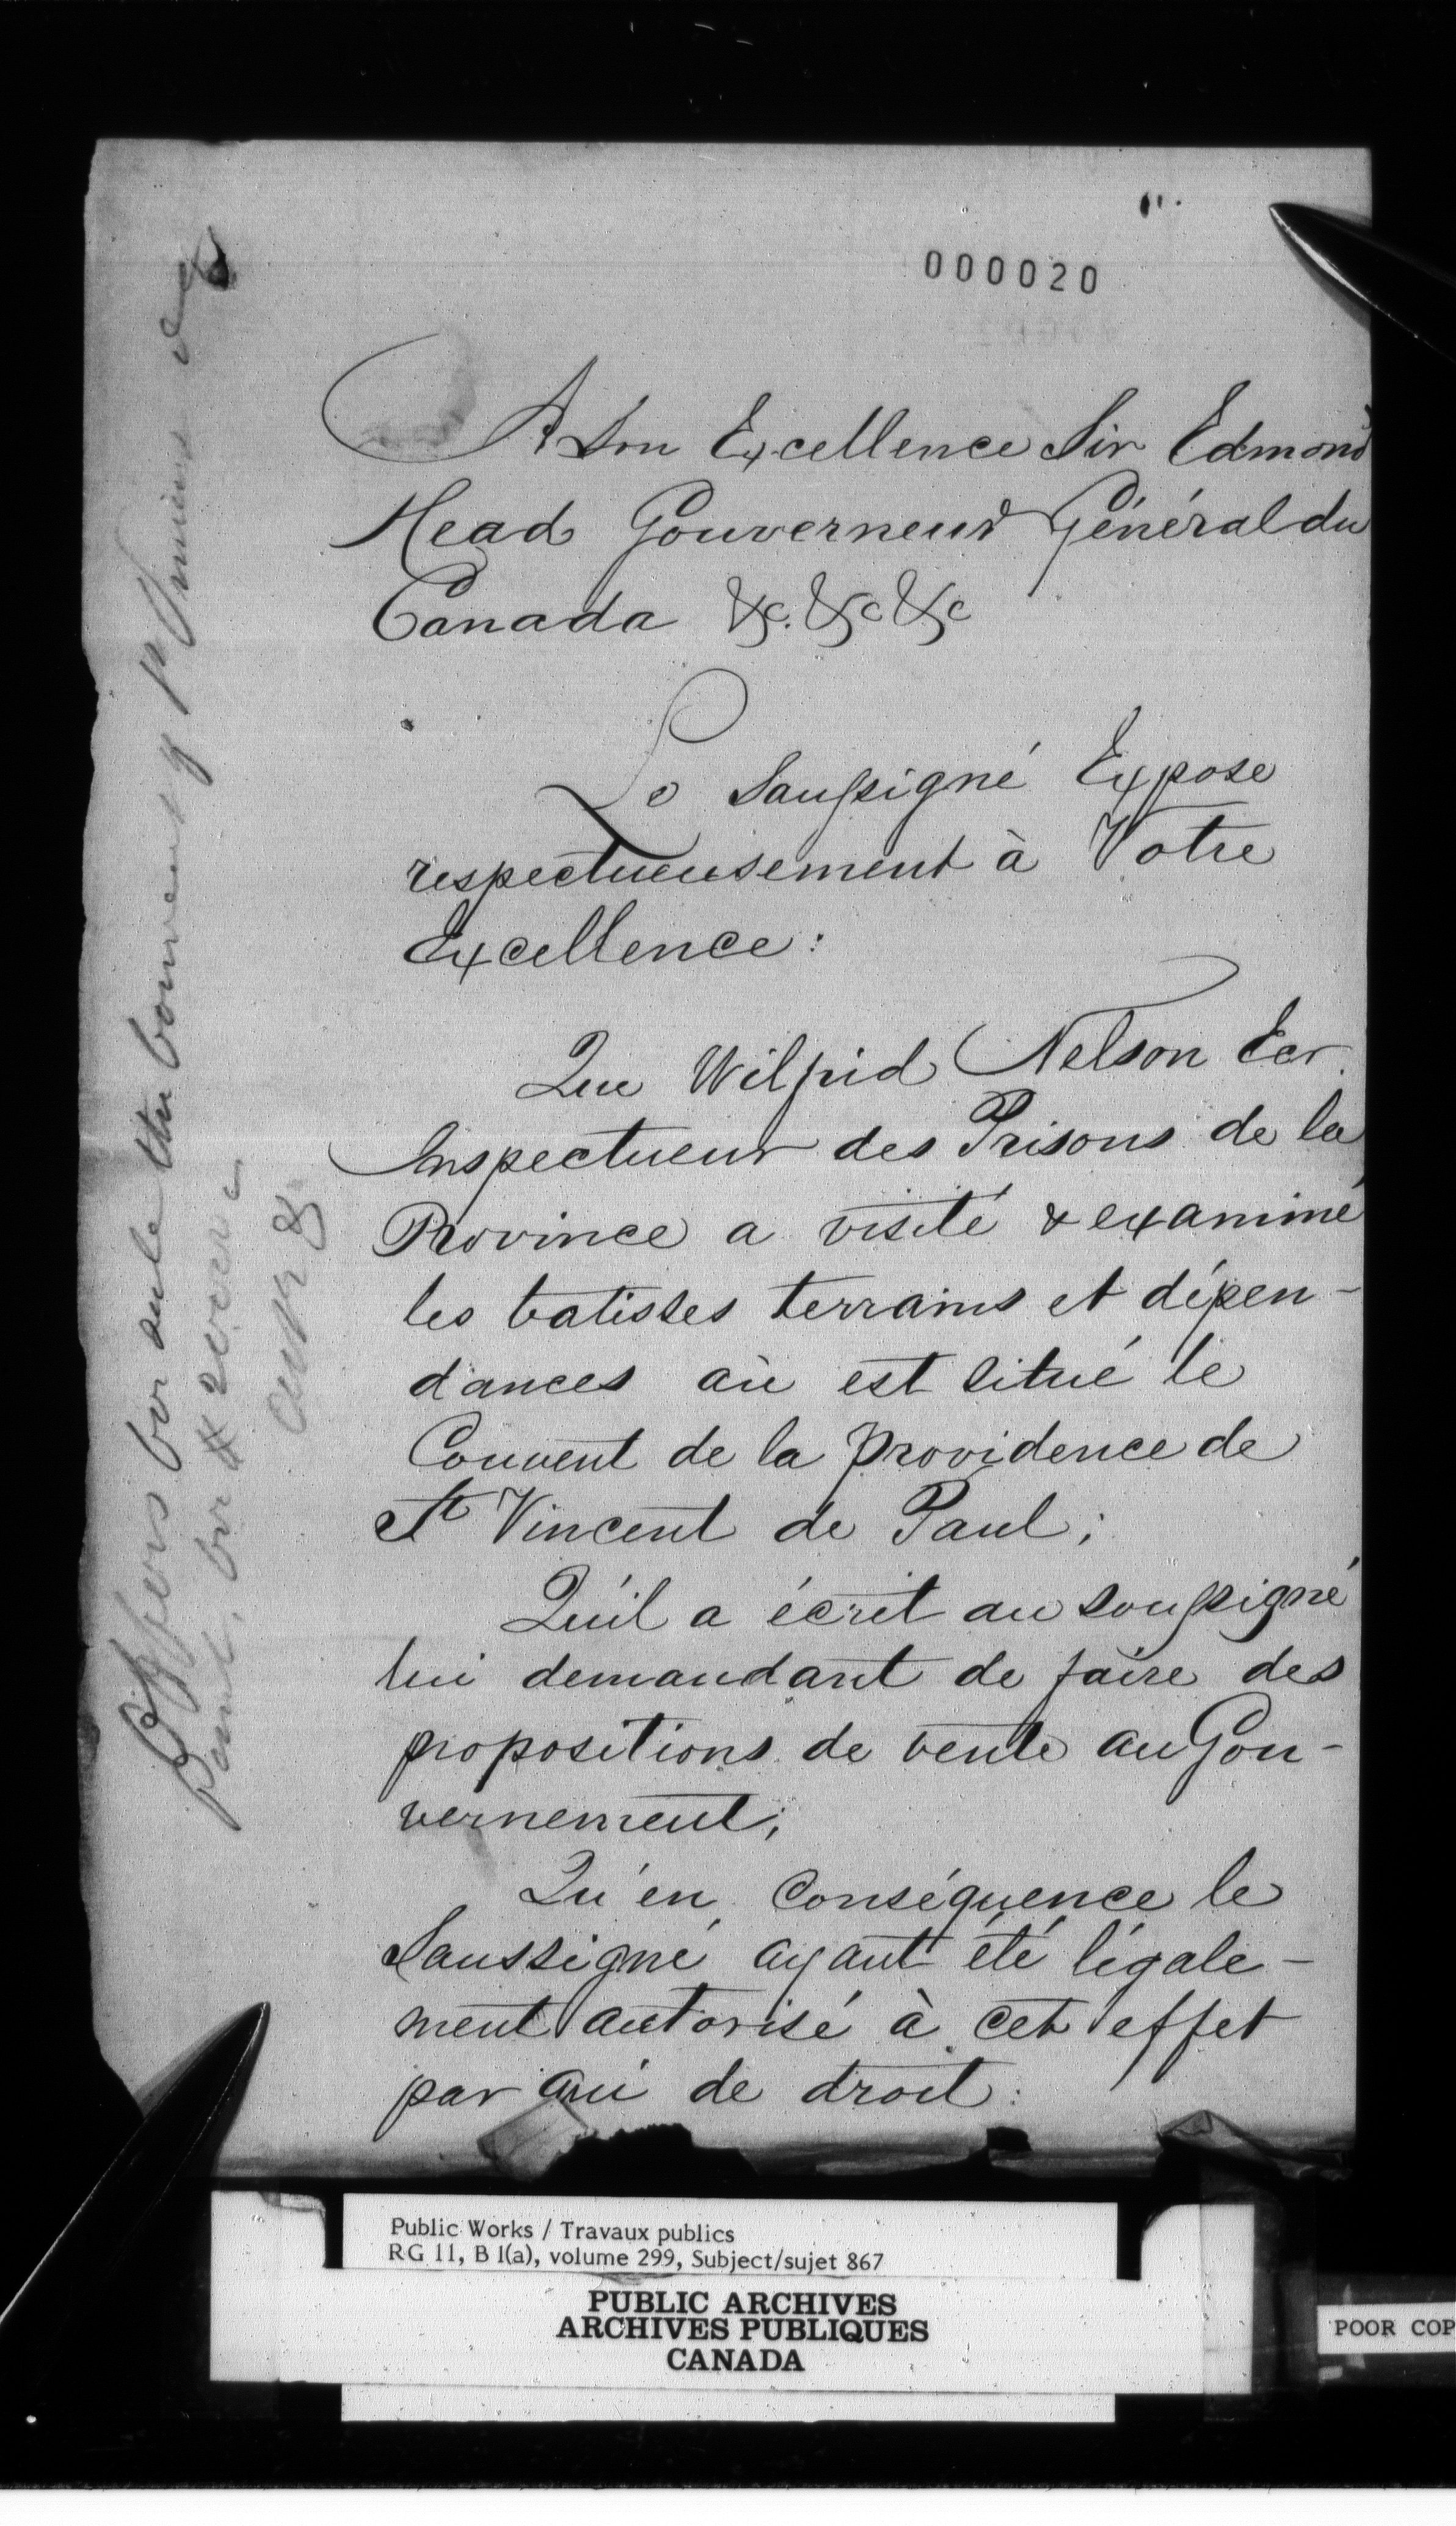 000020
A Son Excellence Sir Edmond
Head Gouverneur Général du
Canada &c. &c &c
Le Soussigné Expose
respectueusement à Votre
Excellence:
Que Wilfrid Nelson Ecr.
Inspectueur des Prisons de la
Province a visité & examiné
les batisses terrains et dépen-
dances où est situé le
Couvent de la Providence de
St Vincent de Paul;
Qu'il a écrit au soussigné
lui demandant de faire des
propositions de vente au Gou-
vernement;
Qu'en conséquence le
Soussigné ayant été légale-
ment autorisé à cet effet
par qui de droit:
Offers for sale the
Paul, for
Public Works / Travaux publics
RG 11, B 1(a), volume 299, Subject/sujet 867
PUBLIC ARCHIVES
ARCHIVES PUBLIQUES
CANADA
POOR COP